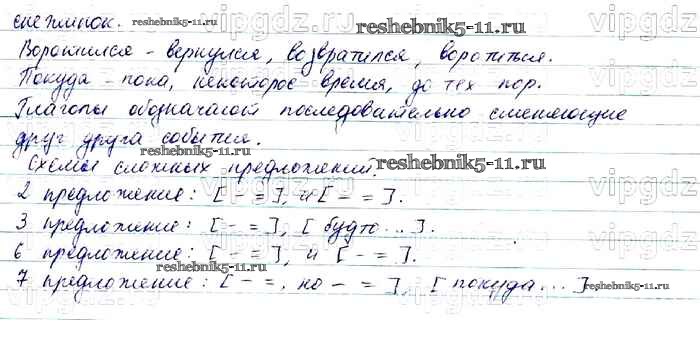 снежинок.
Воротился - вернулся, возвратился, воротиться.
Покуда - пока, некоторое время, до тех пор.
Глаголы обозначают последовательно сменяющие
друг друга события.
Схемы сложных предложений:
2 предложение: [ - = ], и [ - = ].
3 предложение: [ - = ], [ будто ... ].
6 предложение: [ - = ], и [ - = ].
7 предложение: [ - =, но - = ], [ покуда ... ]
reshebnik5-11.ru
reshebnik5-11.ru
reshebnik5-11.ru
reshebnik5-11.ru
reshebnik5-11.ru
vipgdz
vipgdz
vipgdz